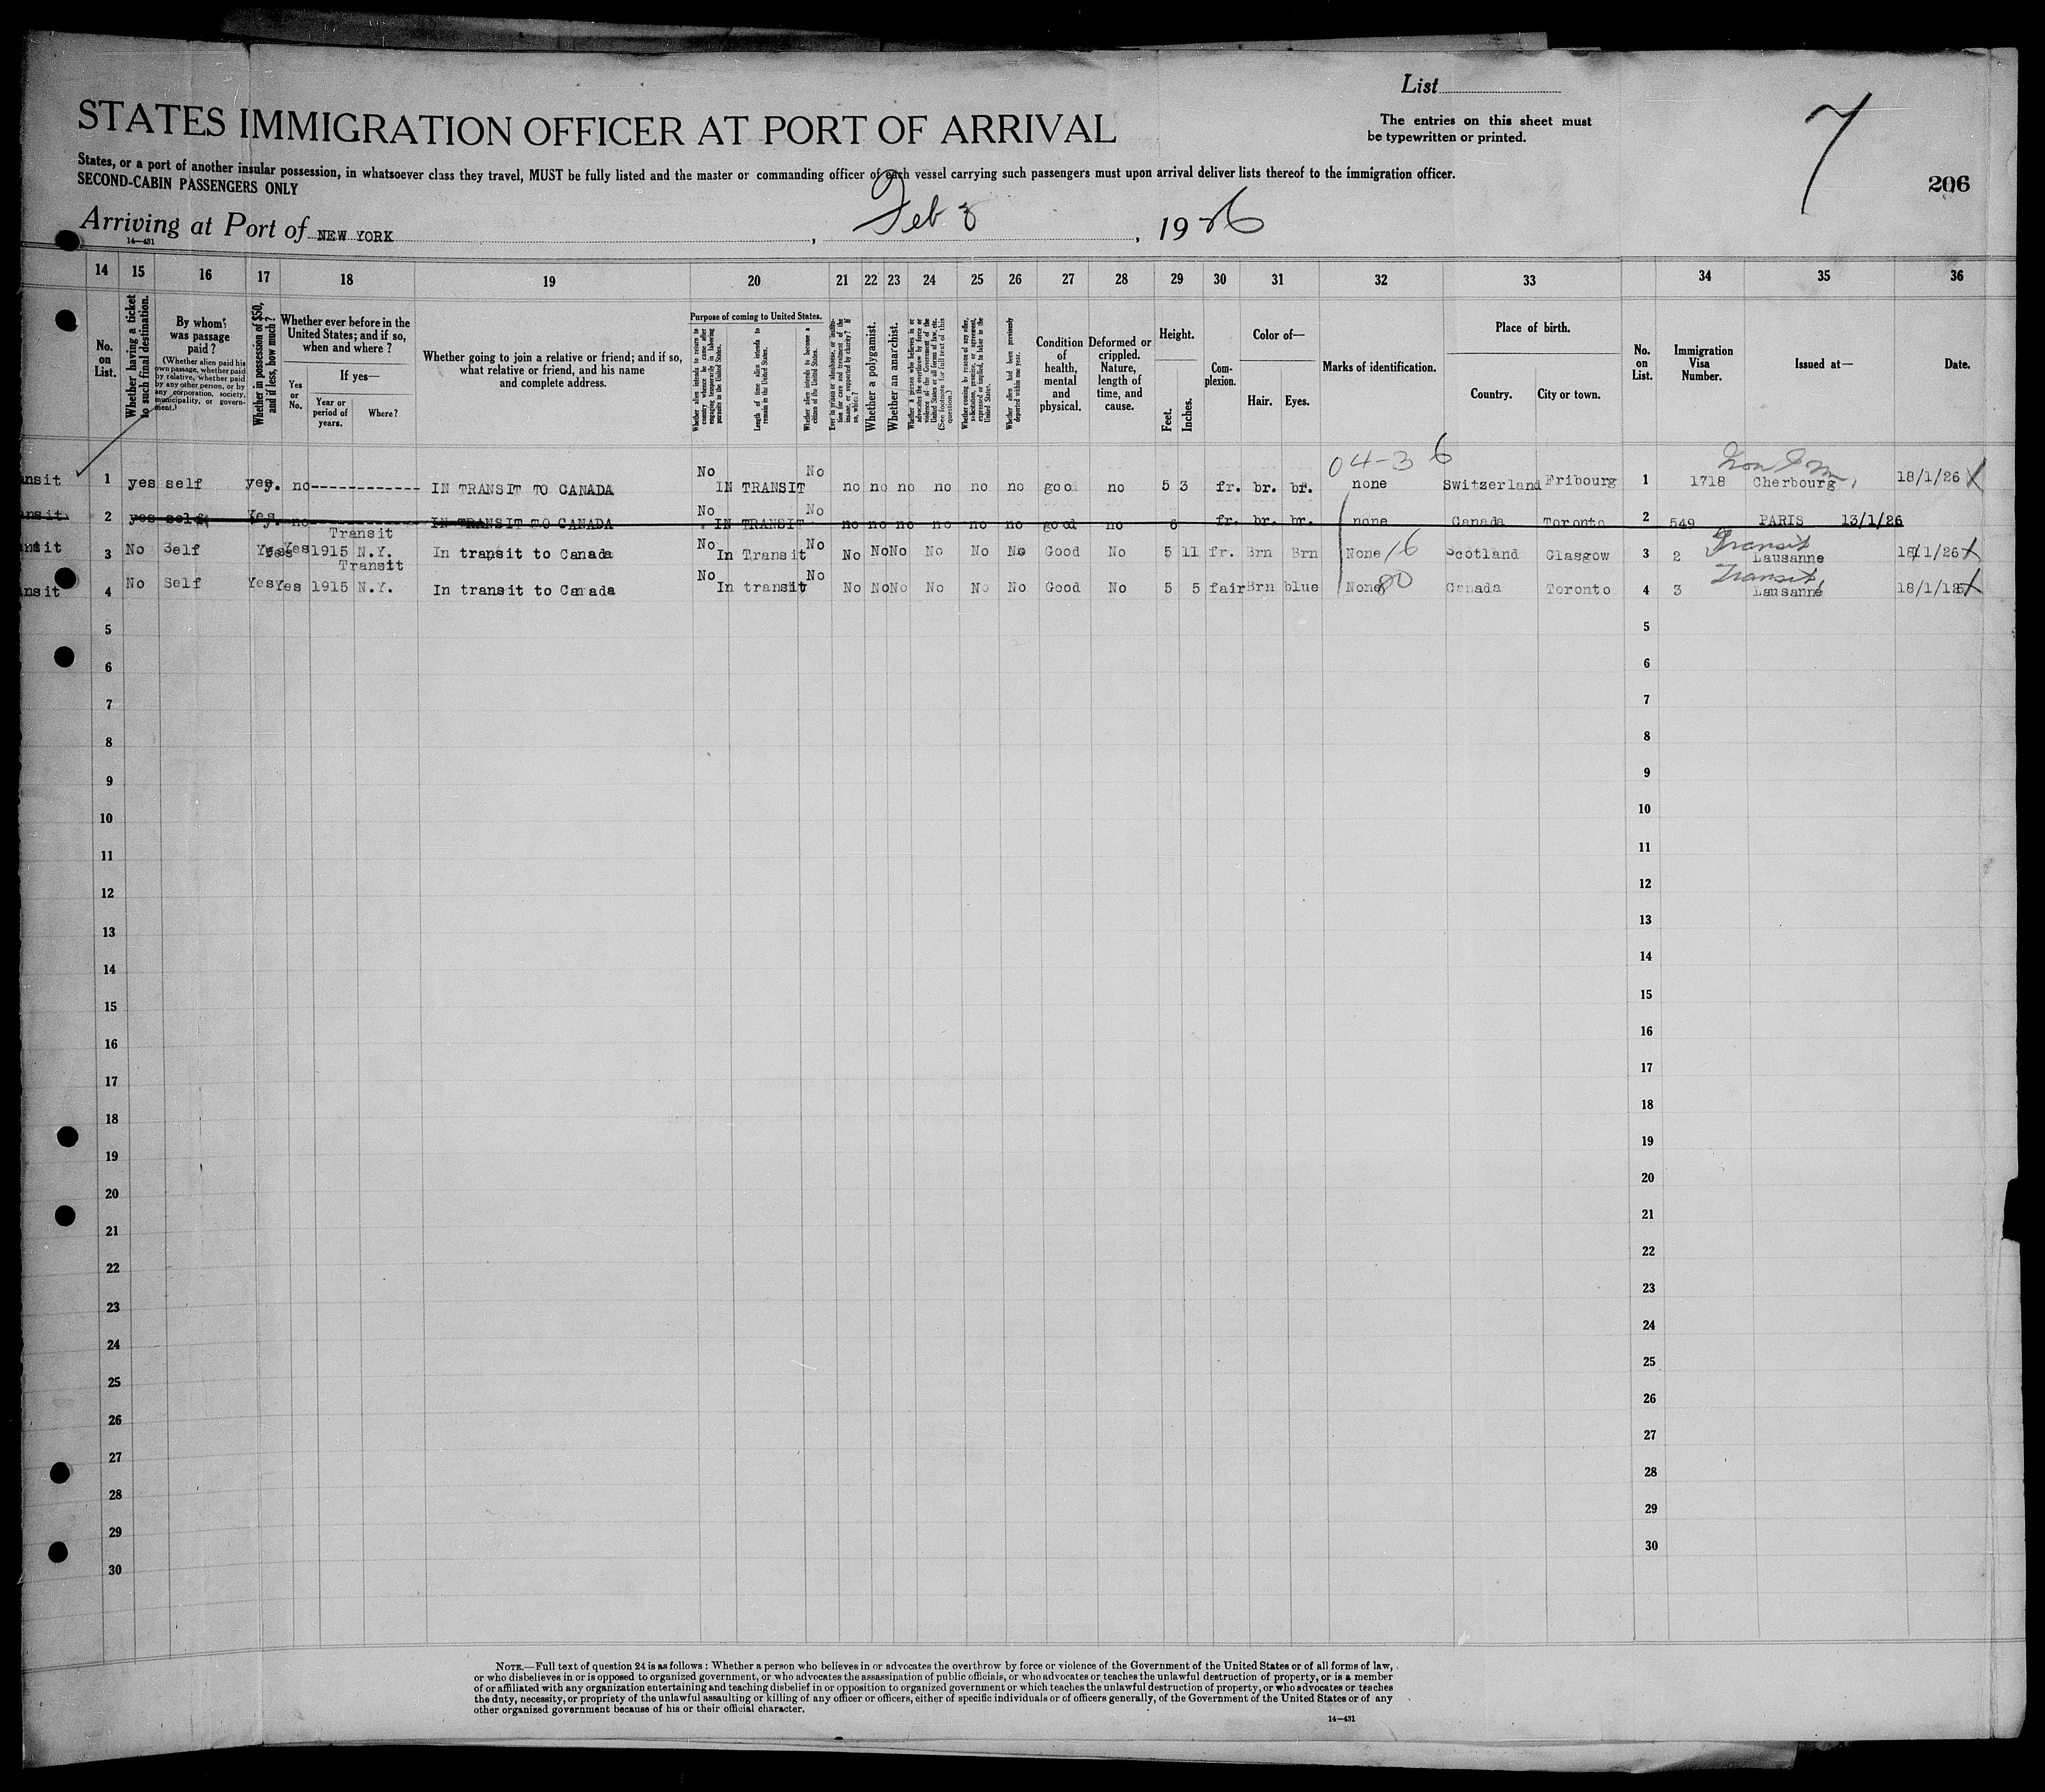 List
7
206
STATES IMMIGRATION OFFICER AT PORT OF ARRIVAL
The entries on this sheet must
be typewritten or printed.
States, or a port of another insular possession, in whatsoever class they travel, MUST be fully listed and the master or commanding officer of each vessel carrying such passengers must upon arrival deliver lists thereof to the immigration officer.
SECOND-CABIN PASSENGERS ONLY
Arriving at Port of NEW YORK, Feb 3, 1926
14—431
14 15 16 17 18 19 20 21 22 23 24 25 26 27 28 29 30 31 32 33 34 35 36
No. on List.
Whether having a ticket to such final destination.
By whom was passage paid?
(Whether alien paid his own passage, whether paid by relative, whether paid by any other person, or by any corporation, society, municipality, or government.)
Whether in possession of $50, and if less, how much?
Whether ever before in the United States; and if so, when and where?
Yes or No.
If yes—
Year or period of years.
Where?
Whether going to join a relative or friend; and if so, what relative or friend, and his name and complete address.
Purpose of coming to United States.
Whether alien intends to return to country whence he came after engaging temporarily in laboring pursuits in the United States.
Length of time alien intends to remain in the United States.
Whether alien intends to become a citizen of the United States.
Ever in prison or almshouse, or institution for care and treatment of the insane, or supported by charity? If so, which?
Whether a polygamist.
Whether an anarchist.
Whether a person who believes in or advocates the overthrow by force or violence of the Government of the United States or all forms of law, etc. (See footnote for full text of this question.)
Whether coming by reason of any offer, solicitation, promise, or agreement, expressed or implied, to labor in the United States.
Whether alien had been previously deported within one year.
Condition of health, mental and physical.
Deformed or crippled. Nature, length of time, and cause.
Height.
Feet. Inches.
Complexion.
Color of—
Hair. Eyes.
Marks of identification.
Place of birth.
Country. City or town.
No. on List.
Immigration Visa Number.
Issued at—
Date.
04-3 6
nsit 1 yes self yes. no------------ IN TRANSIT TO CANADA No IN TRANSIT No no no no no no no good no 5 3 fr. br. br. none Switzerland Fribourg 1 1718 Cherbourg 18/1/26
nsit 2 yes self Yes. no IN TRANSIT TO CANADA No IN TRANSIT No no no no no no no good no 6 fr. br. br. none Canada Toronto 2 549 PARIS 13/1/26
Transit
nsit 3 No Self Yes Yes 1915 N.Y. In transit to Canada No In Transit No No No No No No No Good No 5 11 fr. Brn Brn None 16 Scotland Glasgow 3 2 Transit Lausanne 18/1/26
Transit
nsit 4 No Self Yes Yes 1915 N.Y. In transit to Canada No In transit No No No No No No No Good No 5 5 fair Brn blue None 80 Canada Toronto 4 3 Transit Lausanne
5 5
6 6
7 7
8 8
9 9
10 10
11 11
12 12
13 13
14 14
15 15
16 16
17 17
18 18
19 19
20 20
21 21
22 22
23 23
24 24
25 25
26 26
27 27
28 28
29 29
30 30
NOTE.—Full text of question 24 is as follows: Whether a person who believes in or advocates the overthrow by force or violence of the Government of the United States or of all forms of law,
or who disbelieves in or is opposed to organized government, or who advocates the assassination of public officials, or who advocates or teaches the unlawful destruction of property, or is a member
of or affiliated with any organization entertaining and teaching disbelief in or opposition to organized government or which teaches the unlawful destruction of property, or who advocates or teaches
the duty, necessity, or propriety of the unlawful assaulting or killing of any officer or officers, either of specific individuals or of officers generally, of the Government of the United States or of any
other organized government because of his or their official character.
14—431